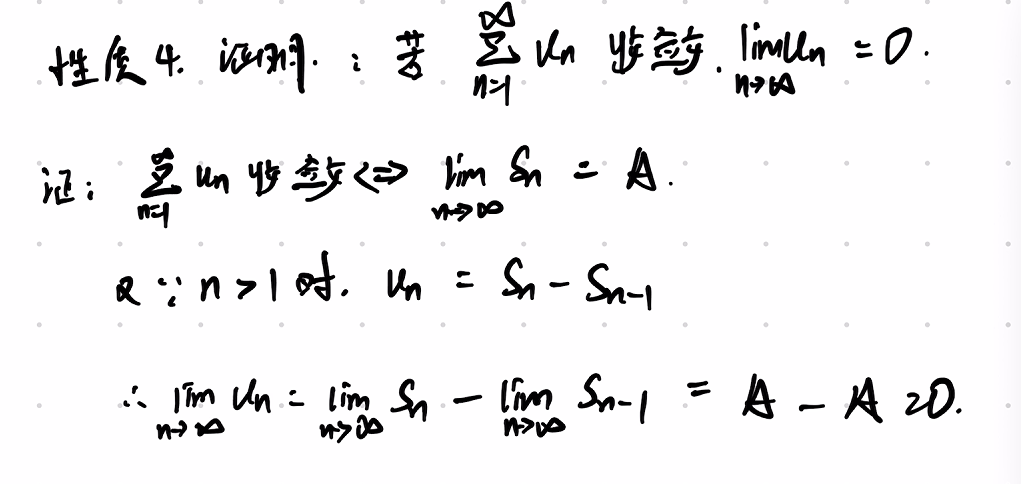 性质4. 证明.：若 ∑_{n=1}^{∞} u_n 收敛. lim_{n→∞} u_n = 0.
证： ∑_{n=1}^{∞} u_n 收敛 <=> lim_{n→∞} S_n = A.
又∵ n>1时. u_n = S_n - S_{n-1}
∴ lim_{n→∞} u_n = lim_{n→∞} S_n - lim_{n→∞} S_{n-1} = A - A =0.